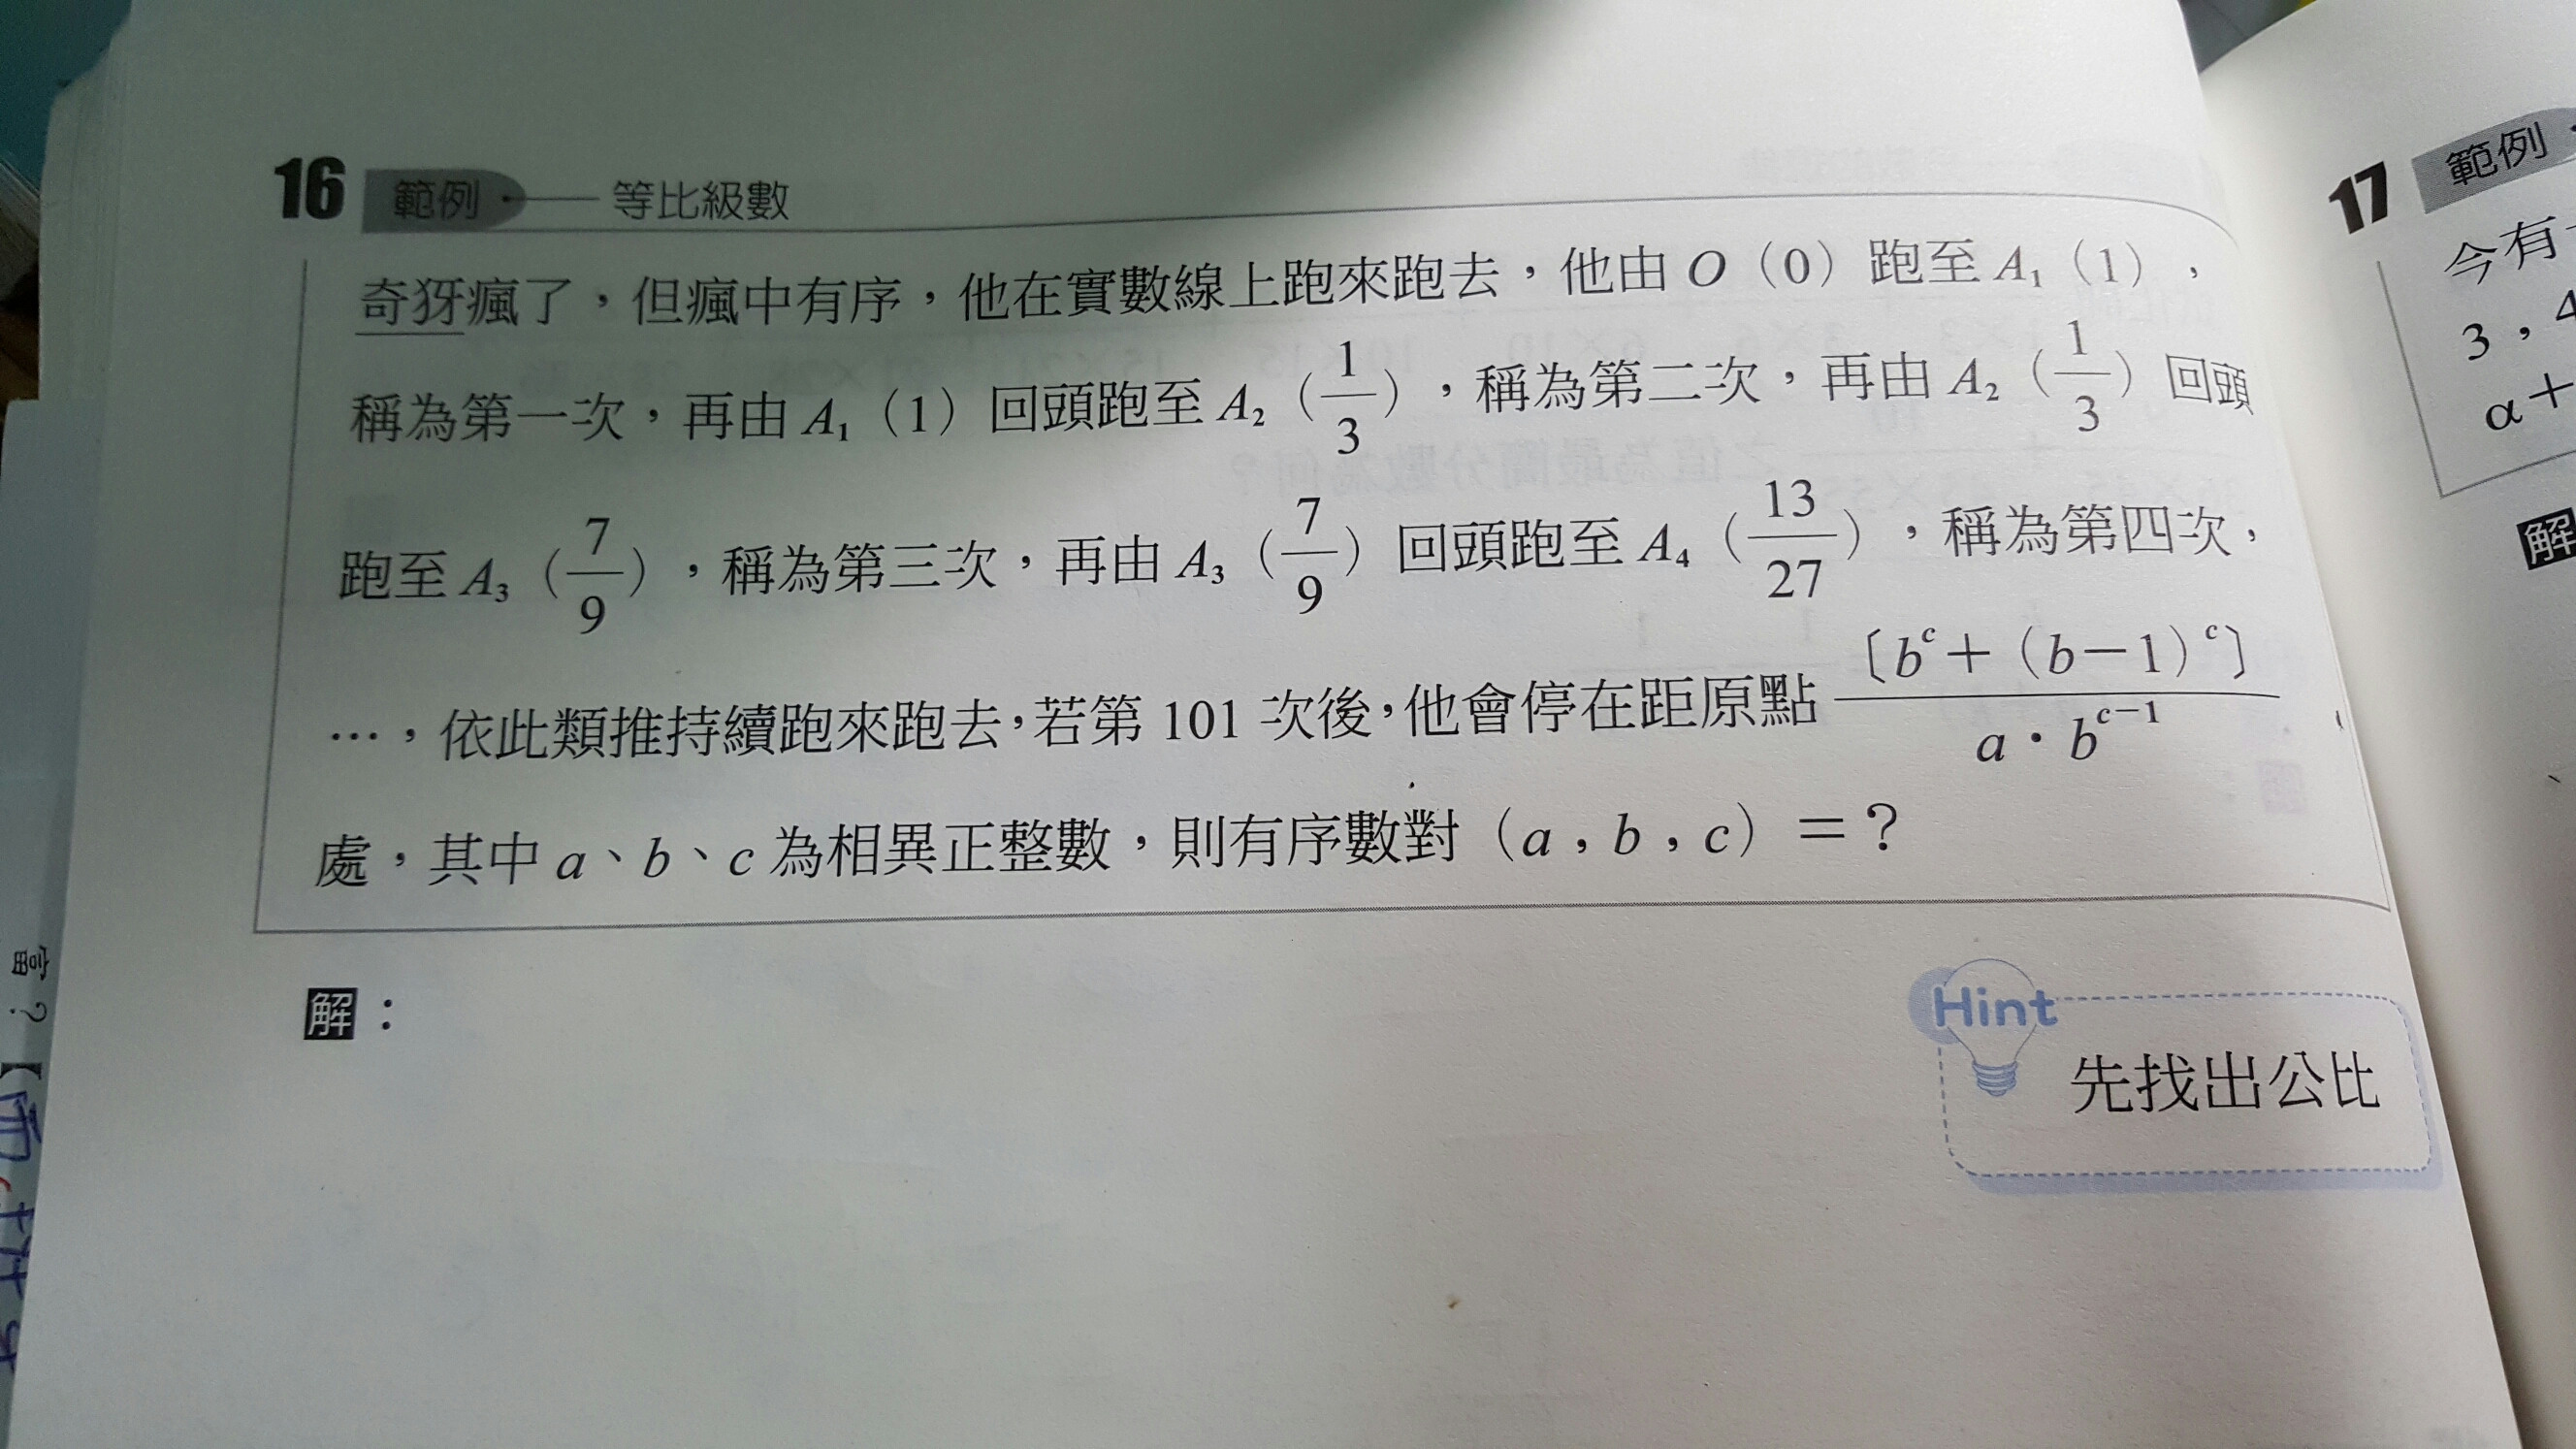 16 範例 等比級數
奇犽瘋了，但瘋中有序，他在實數線上跑來跑去，他由 O（0）跑至 A₁（1），
稱為第一次，再由 A₁（1）回頭跑至 A₂（1/3），稱為第二次，再由 A₂（1/3）回頭
跑至 A₃（7/9），稱為第三次，再由 A₃（7/9）回頭跑至 A₄（13/27），稱為第四次，
…，依此類推持續跑來跑去，若第 101 次後，他會停在距原點 〔b^c＋（b－1）^c〕/(a・b^(c－1))
處，其中 a、b、c 為相異正整數，則有序數對（a，b，c）＝？
解：
Hint
先找出公比
17 範例
今有
3，4
α＋
解
富？【